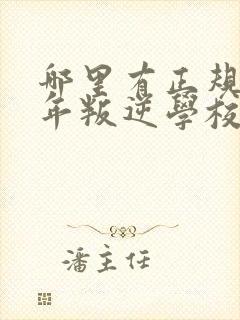 哪里有正规
年叛逆學校
潘主任